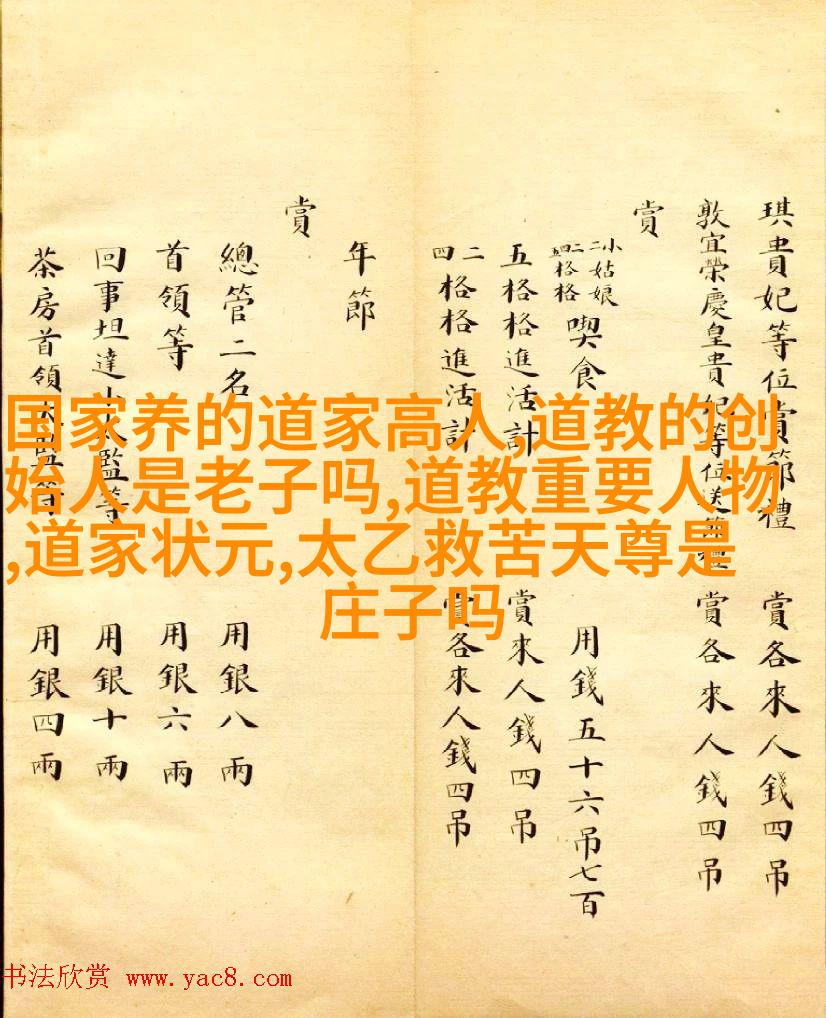 琪貴妃等位賞節禮 賞各來人錢四吊
敦宜榮慶皇貴妃等位送節禮 賞各來人錢四吊
賞
小姑娘 格格 格格 喫食 用錢五十六吊七百
五格格進活計 賞來人錢四吊
二四格格進活計 賞各來人錢四吊
年節
賞
總管二名 用銀八兩
首領等 用銀六兩
回事坦達小太監等 用銀十兩
茶房首領太監等 用銀四兩
国家养的道家高人,道教的创
始人是老子吗,道教重要人物
,道家状元,太乙救苦天尊是
庄子吗
书法欣赏 www.yac8.com